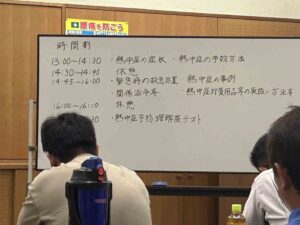 腰痛を防ごう
時間割
13:00~14:30 ・熱中症の症状 ・熱中症の予防方法
14:30~14:45 休憩
14:45~16:00 ・緊急時の救急処置 ・熱中症の事例
・関係法令等 ・熱中症対策用品等の取扱い方法等
16:00~16:10 休憩
30 ・熱中症予防 理解度テスト